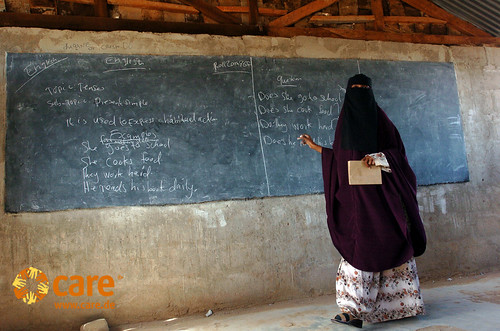 English
English
Roll Call list
Topic: Tenses
Sub-topic: Present simple
It is used to express habitual action
Examples
She goes to school
She cooks food
They work hard
He reads his book daily.
Does she go to school
Does she cook food
Do they work hard
Does he
care